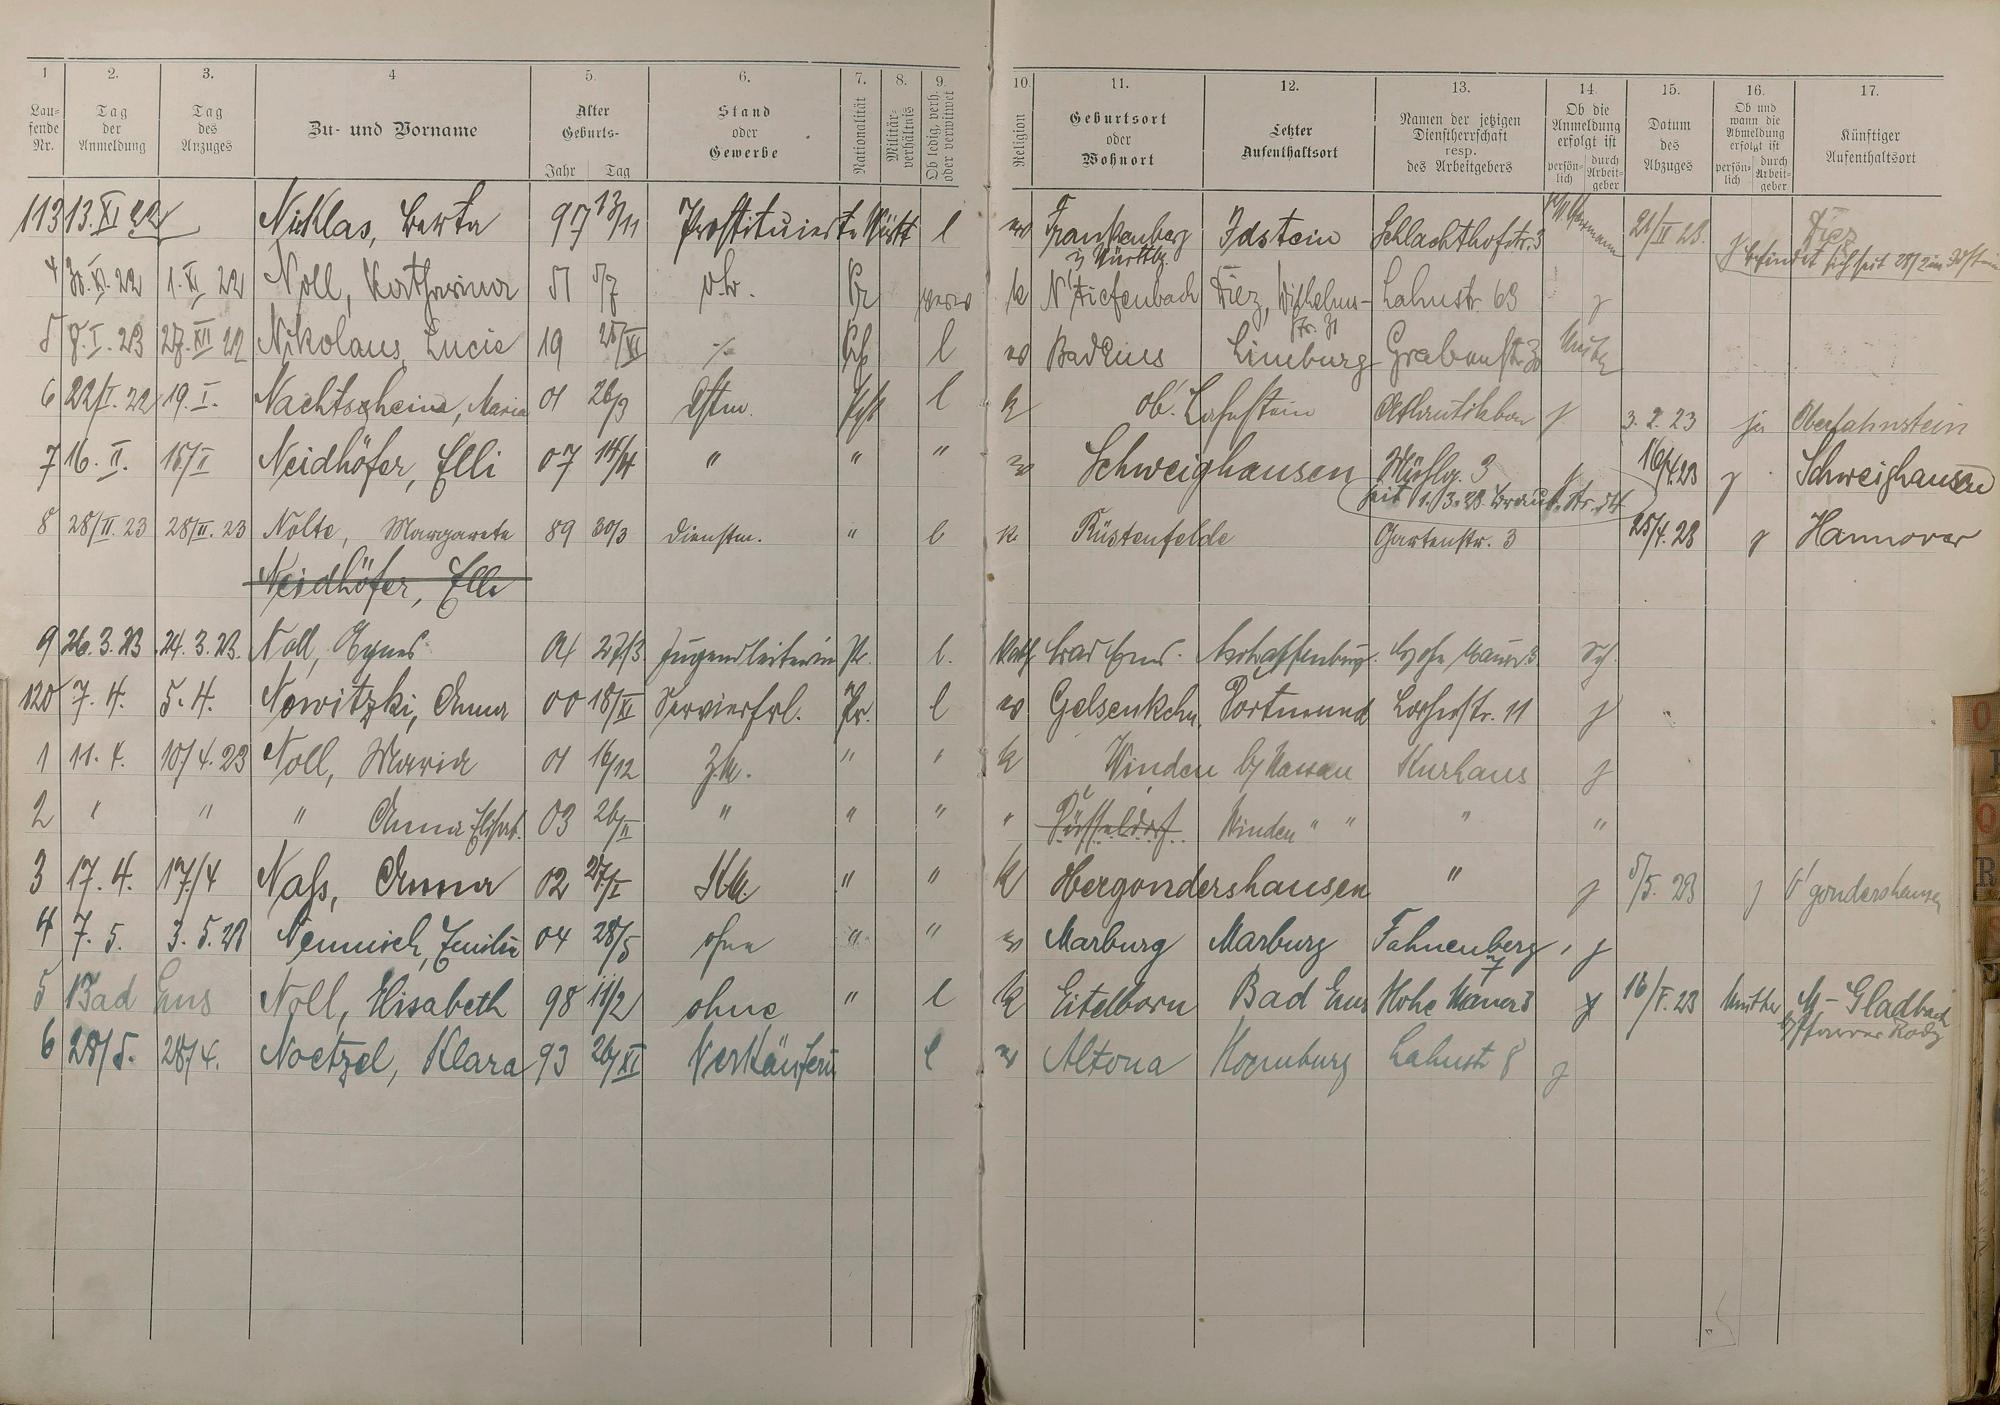 1 2. 3. 4 5. 6. 7. 8. 9. 10. 11. 12. 13. 14. 15. 16. 17.
Lau-
fende
Nr.
Tag
der
Anmeldung
Tag
des
Anzuges
Zu- und Vorname
Alter
Geburts-
Jahr Tag
Stand
oder
Gewerbe
Nationalität
Militär-
verhältnis
Ob ledig, verh.
oder verwitwet
Religion
Geburtsort
oder
Wohnort
Letzter
Aufenthaltsort
Namen der jetzigen
Dienstherrschaft
resp.
des Arbeitgebers
Ob die
Anmeldung
erfolgt ist
persön-
lich
durch
Arbeit-
geber
Datum
des
Abzuges
Ob und
wann die
Abmeldung
erfolgt ist
persön-
lich
durch
Arbeit-
geber
Künftiger
Aufenthaltsort
113 13. XI 22 Nicklas, Berta 97 13/11 Prostituierte Württ l ev Frankenberg Idstein Schlachthofstr. 3 21/II 23. Diez
i/ Württbg. j befindet sich seit 28/2 in Idstein
4 30. XI. 22 1. XI 22 Noll, Katharina 51 5/7 o.b. Pr verw k N'Tiefenbach Diez, Wilhelm- Lahnstr. 63 j
str. 31
5 8. I. 23 27. XII 22 Nikolaus, Lucie 19 25/XI -/- l ev Bad Ems Limburg Grabenstr. 30
6 22/I. 22 19. I. Nachtsheim, Maria 01 26/3 Dstm. l k ob. Lahnstein j 3. 2. 23 ja Oberlahnstein
7 16. II. 15/II Neidhöfer, Elli 07 14/4 " " " ev Schweighausen Mühlg. 3 16/4 23 j Schweighausen
seit 1.3.23. Braub. str. 54
8 28/II. 23 28/II. 23 Nolte, Margarete 89 30/3 Dienstm. " l k. Rüstenfelde Gartenstr. 3 25/4. 23 j Hannover
Neidhöfer, Elli
9 26. 3. 23 24. 3. 23. Noll, Agnes 04 27/3 Jugendleiterin Pr. l. Kath Bad Ems. Aschaffenburg. Hohe Mauer 3
120 7. 4. 5. 4. Nowitzki, Anna 00 18/XI Servierfrl. Pr. l ev Gelsenkchn. Dortmund j
1 11. 4. 10/4. 23 Noll, Maria 01 16/12 " " k Winden b/Nassau Kurhaus j
2 " " " Anna Elisab. 03 26/II " " " " Düsseldorf Winden " " " "
3 17. 4. 17/4 Naß, Anna 02 27/I " " k Obergondershausen " j 5/5. 23 j O'gondershausen
4 7. 5. 3. 5. 23 Nennich, Emilie 04 28/5 ohne " " ev Marburg Marburg Fahnenberg j
7
5 Bad Ems Noll, Elisabeth 98 11/2 ohne " l k Eitelborn Bad Ems Hohe Mauer 3 j 16/V. 23 Mutter M-Gladbach
6 28/5. 28/4. Noetzel, Klara 93 26/XI Verkäuferin l ev Altona Homburg Lahnstr 8 j